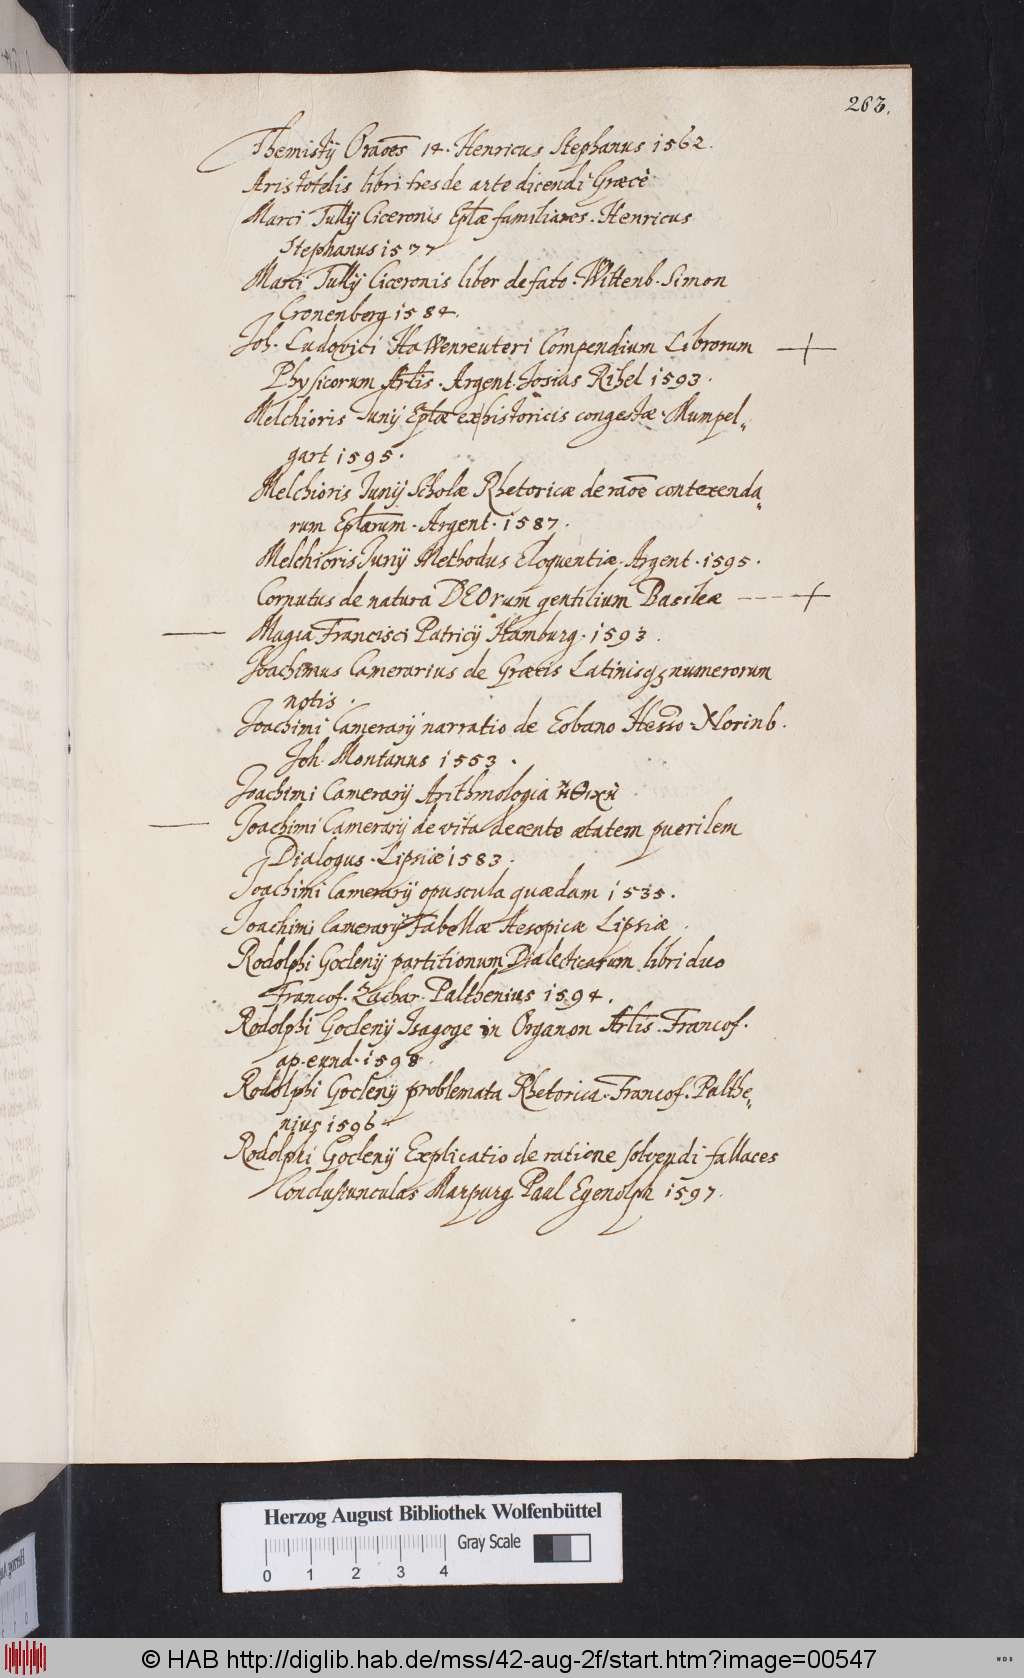 263.
Themistij Oraōes 14. Henricus Stephanus 1562.
Aristotelis libri tres de arte dicendi Græcè
Marci Tullij Ciceronis Eplæ familiares. Henricus
Stephanus 1577
Marci Tullij Ciceronis liber de fato. Wittenb. Simon
Gronenberg 1584.
Joh. Ludovici Hawenreuteri Compendium Librorum
Physicorum Artis. Argent. Josias Rihel 1593.
Melchioris Junij Eplæ ex historicis congestæ. Mumpel„
gart 1595.
Melchioris Junij Scholæ Rhetoricæ de raōe contexenda„
rum Eplarum. Argent. 1587.
Melchioris Junij Methodus Eloquentiæ. Argent. 1595.
Cornutus de natura DEOrum gentilium Basileæ
Magia Francisci Patricij Hamburg. 1593.
Joachimus Camerarius de Græcis Latinisq; numerorum
notis.
Joachimi Camerarij narratio de Eobano Hesso. Norinb.
Joh. Montanus 1553.
Joachimi Camerarij Arithmologia ἠθικὴ
Joachimi Camerarij de vita decente ætatem puerilem
Dialogus. Lipsiæ 1583.
Joachimi Camerarij opuscula quædam 1535.
Joachimi Camerarij Fabellæ Aesopicæ Lipsiæ.
Rodolphi Goclenij partitionum Dialecticarum libri duo
Francof. Zachar. Palthenius 1594.
Rodolphi Goclenij Isagoge in Organon Artis. Francof.
ap. eund. 1598.
Rodolphi Goclenij problemata Rhetorica. Francof. Palthe„
nius 1596
Rodolphi Goclenij Explicatio de ratione solvendi fallaces
Conclusiunculas Marpurg. Paul Egenolph 1597.
Herzog August Bibliothek Wolfenbüttel
Gray Scale
0 1 2 3 4
© HAB http://diglib.hab.de/mss/42-aug-2f/start.htm?image=00547